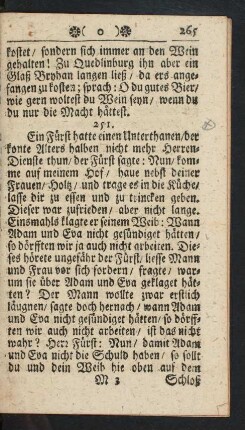 ❀( o )❀ 265
kostet / sondern sich immer an den Wein
gehalten! Zu Quedlinburg ihn aber ein
Glaß Bryhan langen ließ / da ers ange-
fangen zu kosten; sprach: O du gutes Bier /
wie gern woltest du Wein seyn / wenn du
du nur die Macht hättest.
251.
Ein Fürst hatte einen Unterthanen / der
konte Alters halben nicht mehr Herren-
Dienste thun / der Fürst sagte: Nun / kom-
me auf meinem Hof / haue nebst deiner
Frauen / Holtz / und trage es in die Küche /
lasse dir zu essen und zu trincken geben.
Dieser war zufrieden / aber nicht lange.
Einsmahls klagte er seinem Weib: Wann
Adam und Eva nicht gesündiget hätten /
so dörfften wir ja auch nicht arbeiten. Die-
ses hörete ungefähr der Fürst / liesse Mann
und Frau vor sich fordern / fragte / war-
um sie über Adam und Eva geklaget hät-
ten? Der Mann wollte zwar erstlich
läugnen / sagte doch hernach / wann Adam
und Eva nicht gesündiget hätten / so dörff-
ten wir auch nicht arbeiten / ist das nicht
wahr? Herr Fürst: Nun / damit Adam
und Eva nicht die Schuld haben / so sollt
du und dein Weib hie oben auf dem
M 3 Schloß